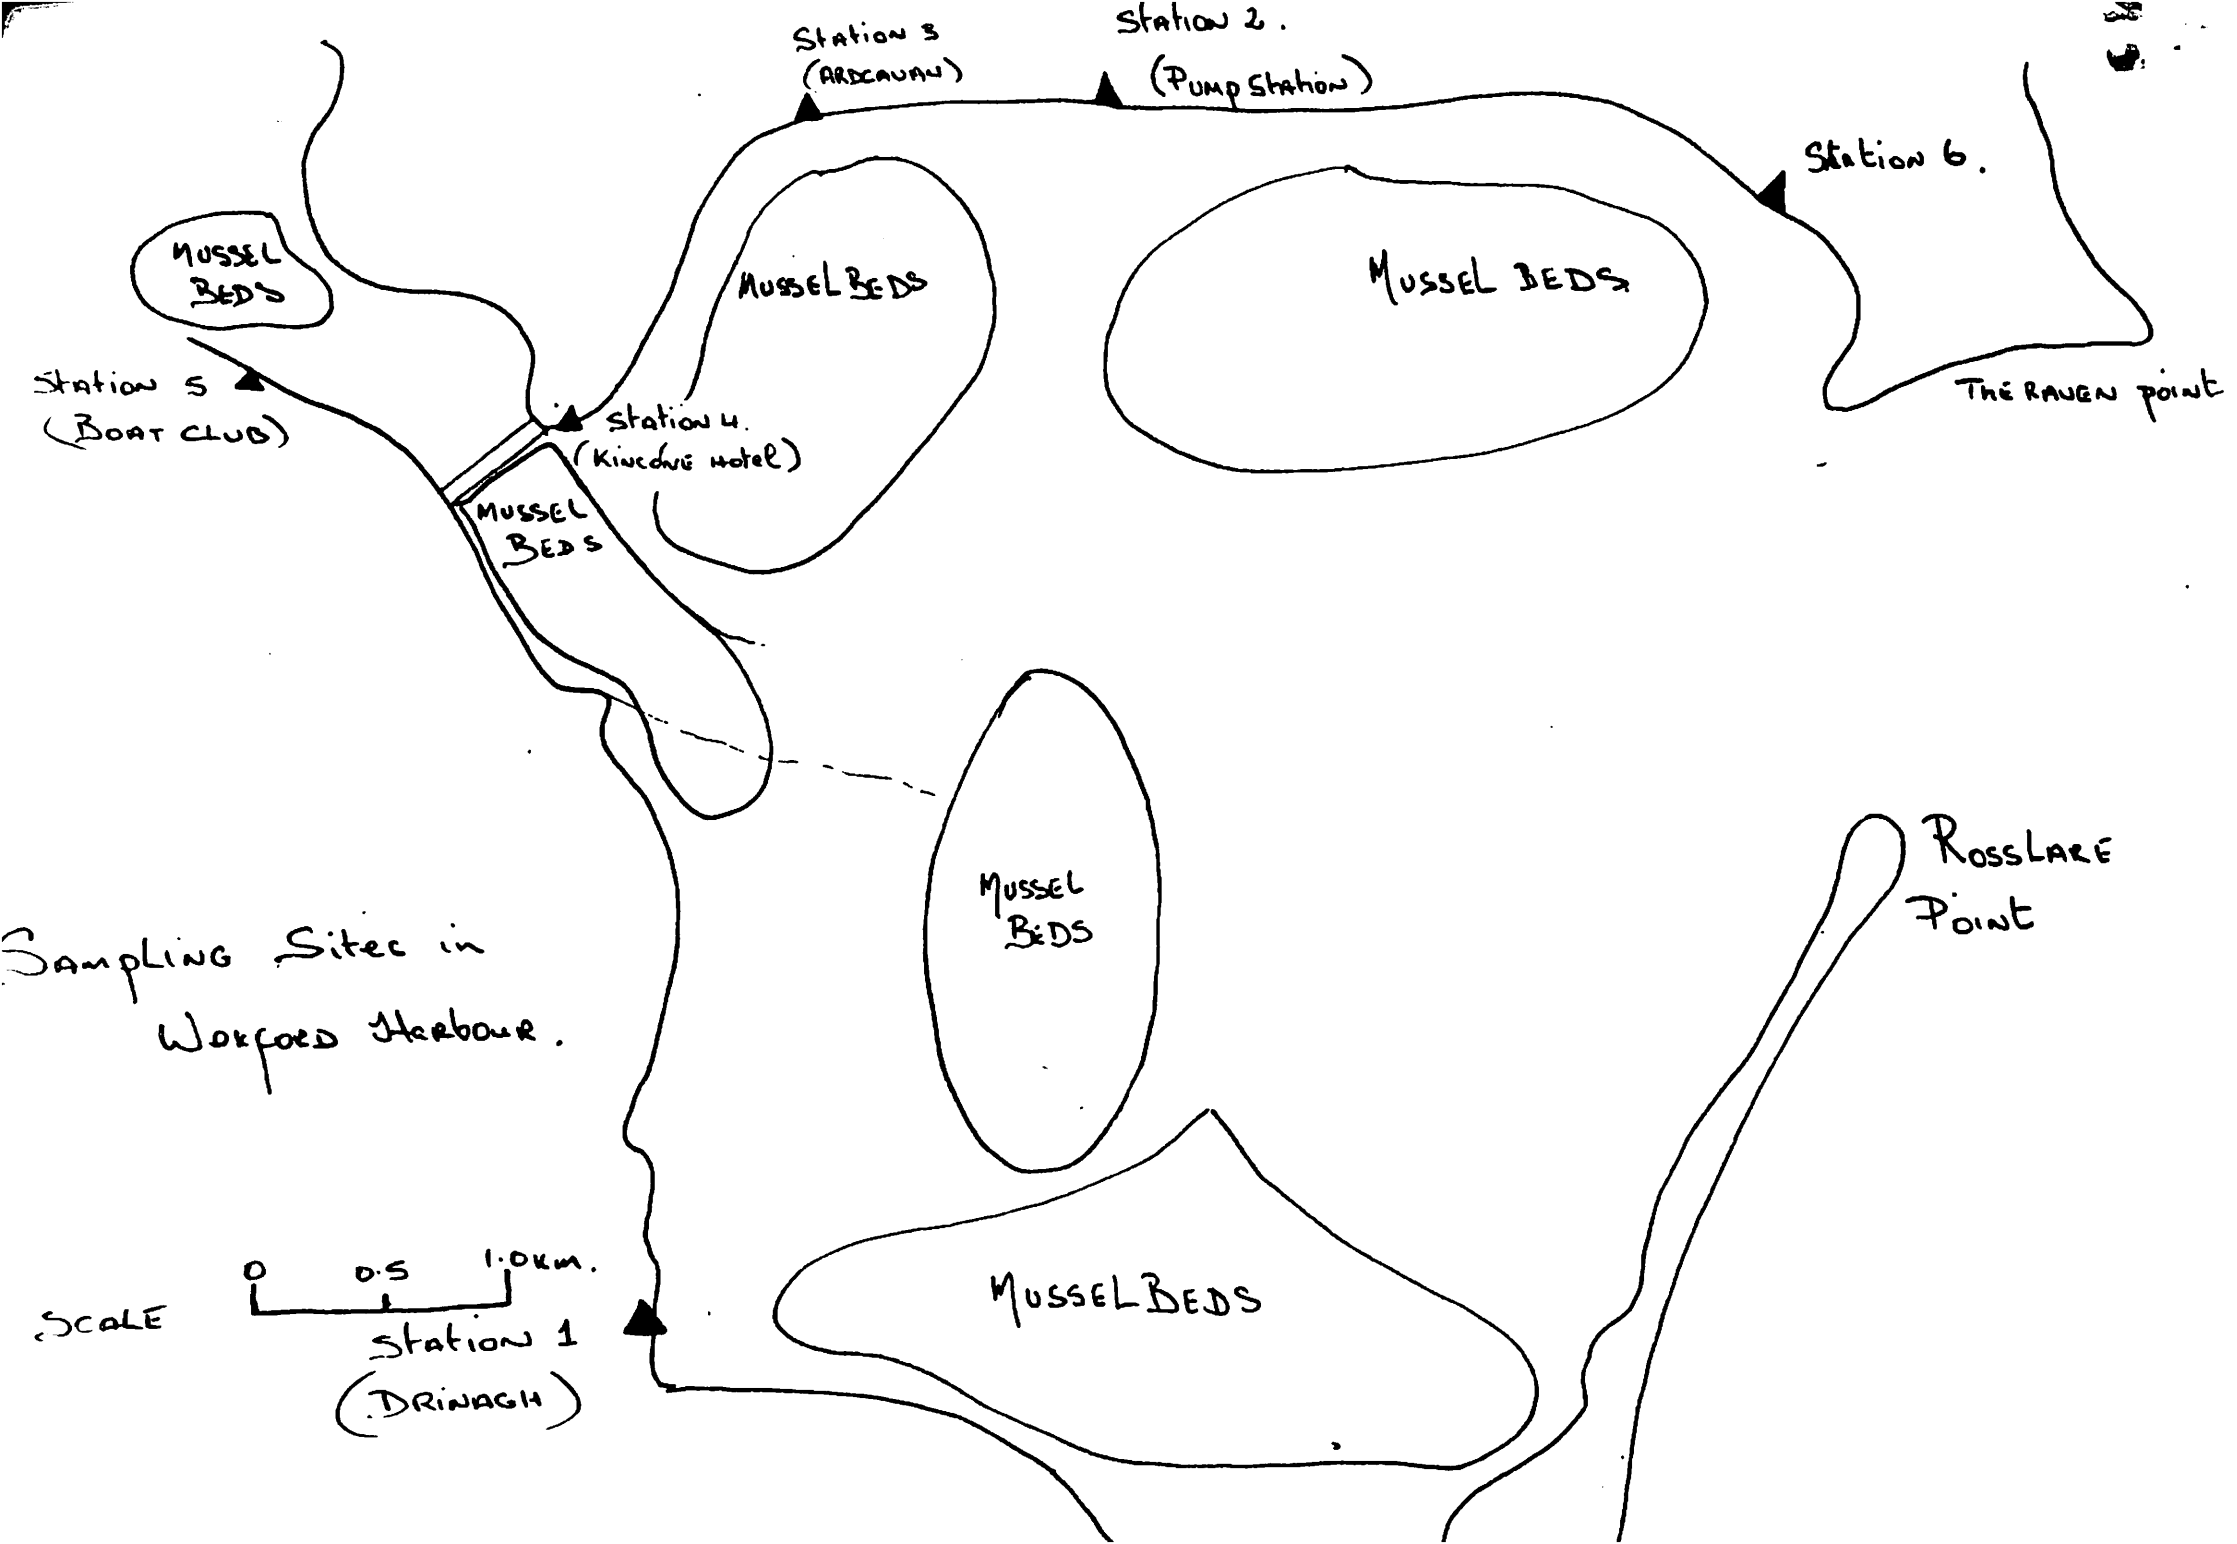 Station 3
(ARDCAVAN)
Station 2.
(Pump Station)
Station 6.
MUSSEL
BEDS
MUSSEL BEDS
MUSSEL BEDS
Station 5
(BOAT CLUB)
Station 4.
(Kincone Hotel)
THE RAVEN point
MUSSEL
BEDS
MUSSEL
BEDS
ROSSLARE
POINT
SAMPLING Sites in
Wexford Harbour.
MUSSEL BEDS
0 0.5 1.0 km.
SCALE
Station 1
(DRINAGH)